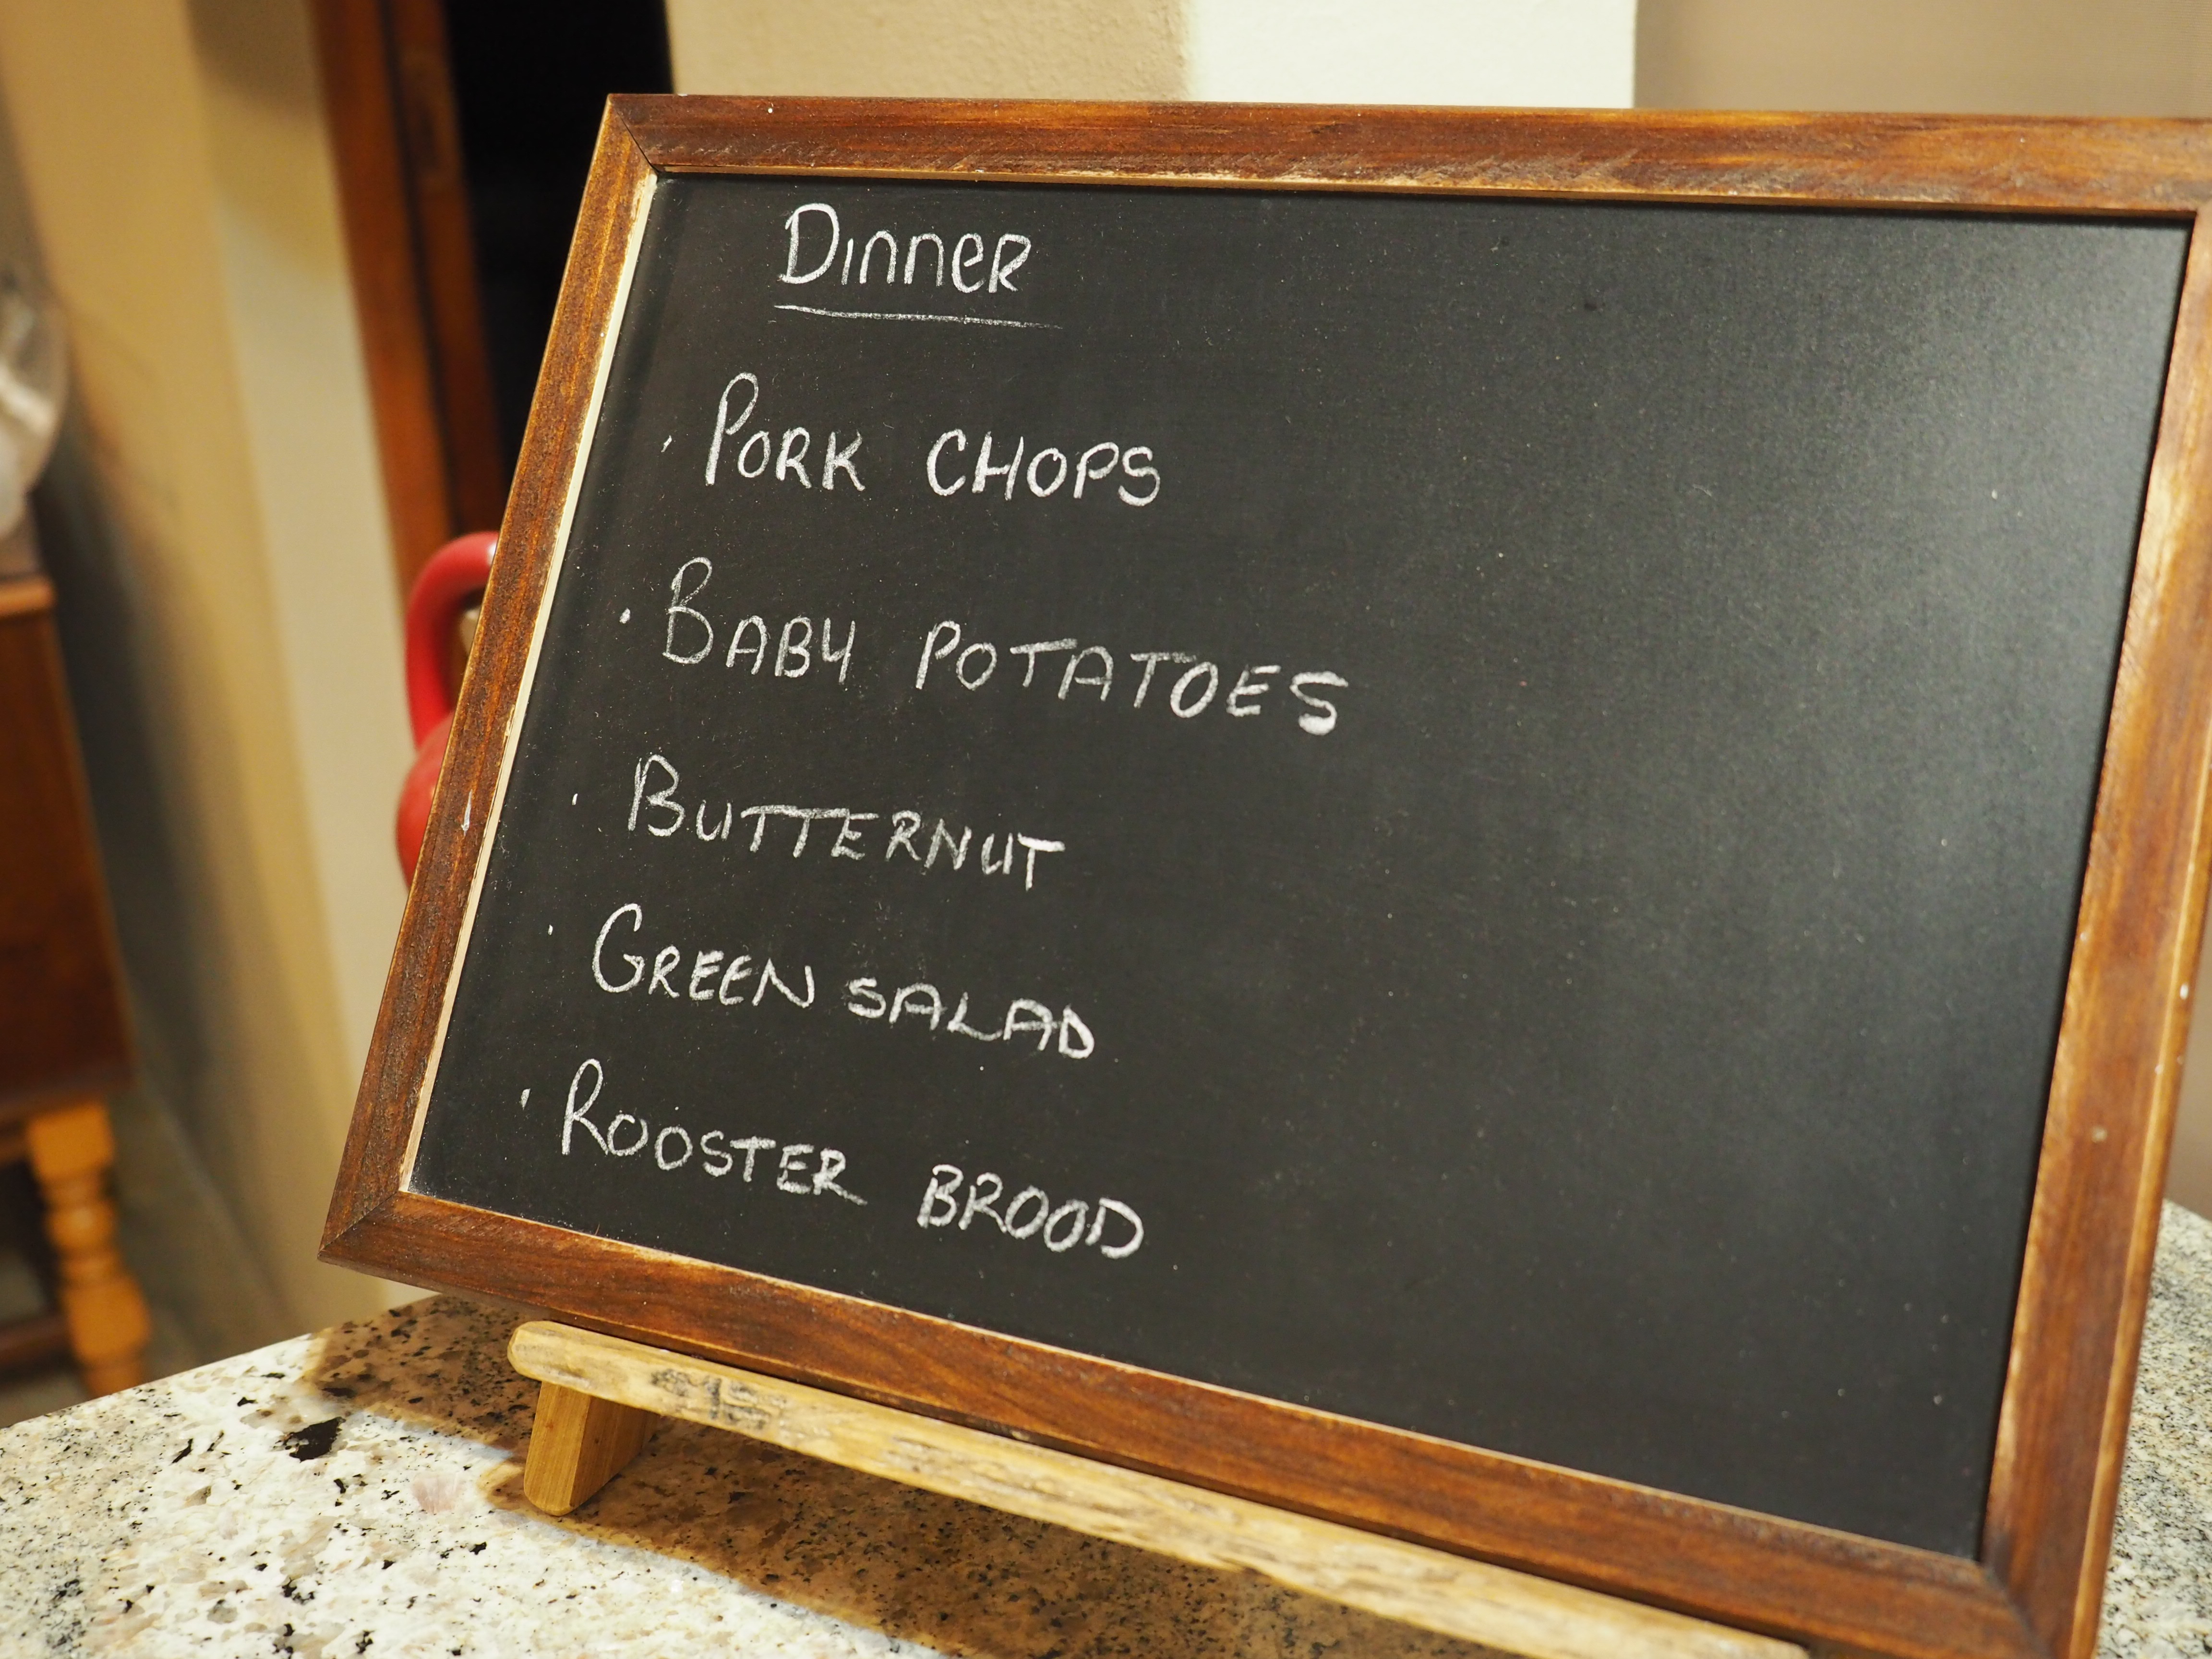 Dinner
· PORK CHOPS
· BABY POTATOES
· BUTTERNUT
· GREEN SALAD
· ROOSTER BROOD